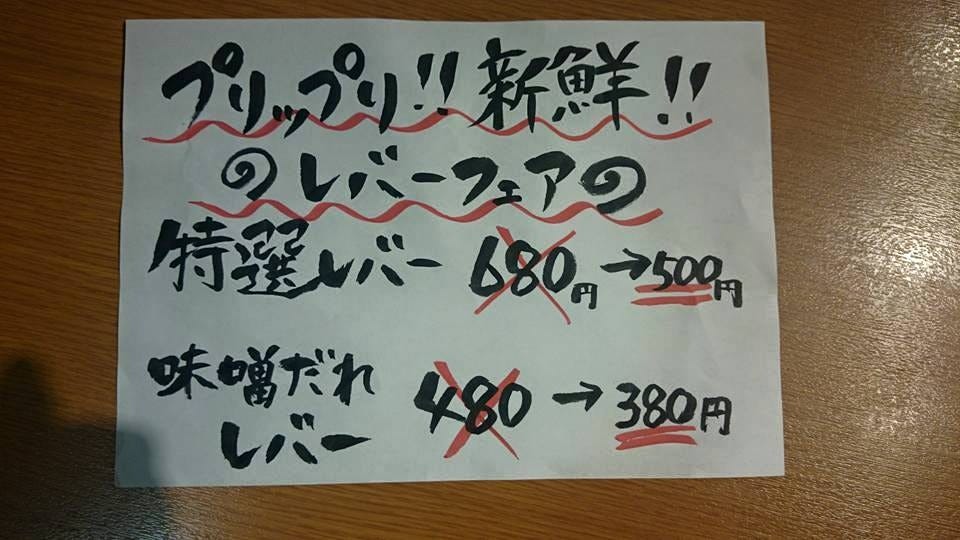 プリップリ!!新鮮!!
のレバーフェアの
特選レバー 680円→500円
味噌だれ 480→380円
レバー